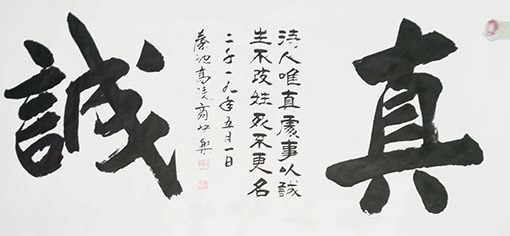 真
待人唯真處事以誠
生不改姓死不更名
二千一九年五月一日
誠